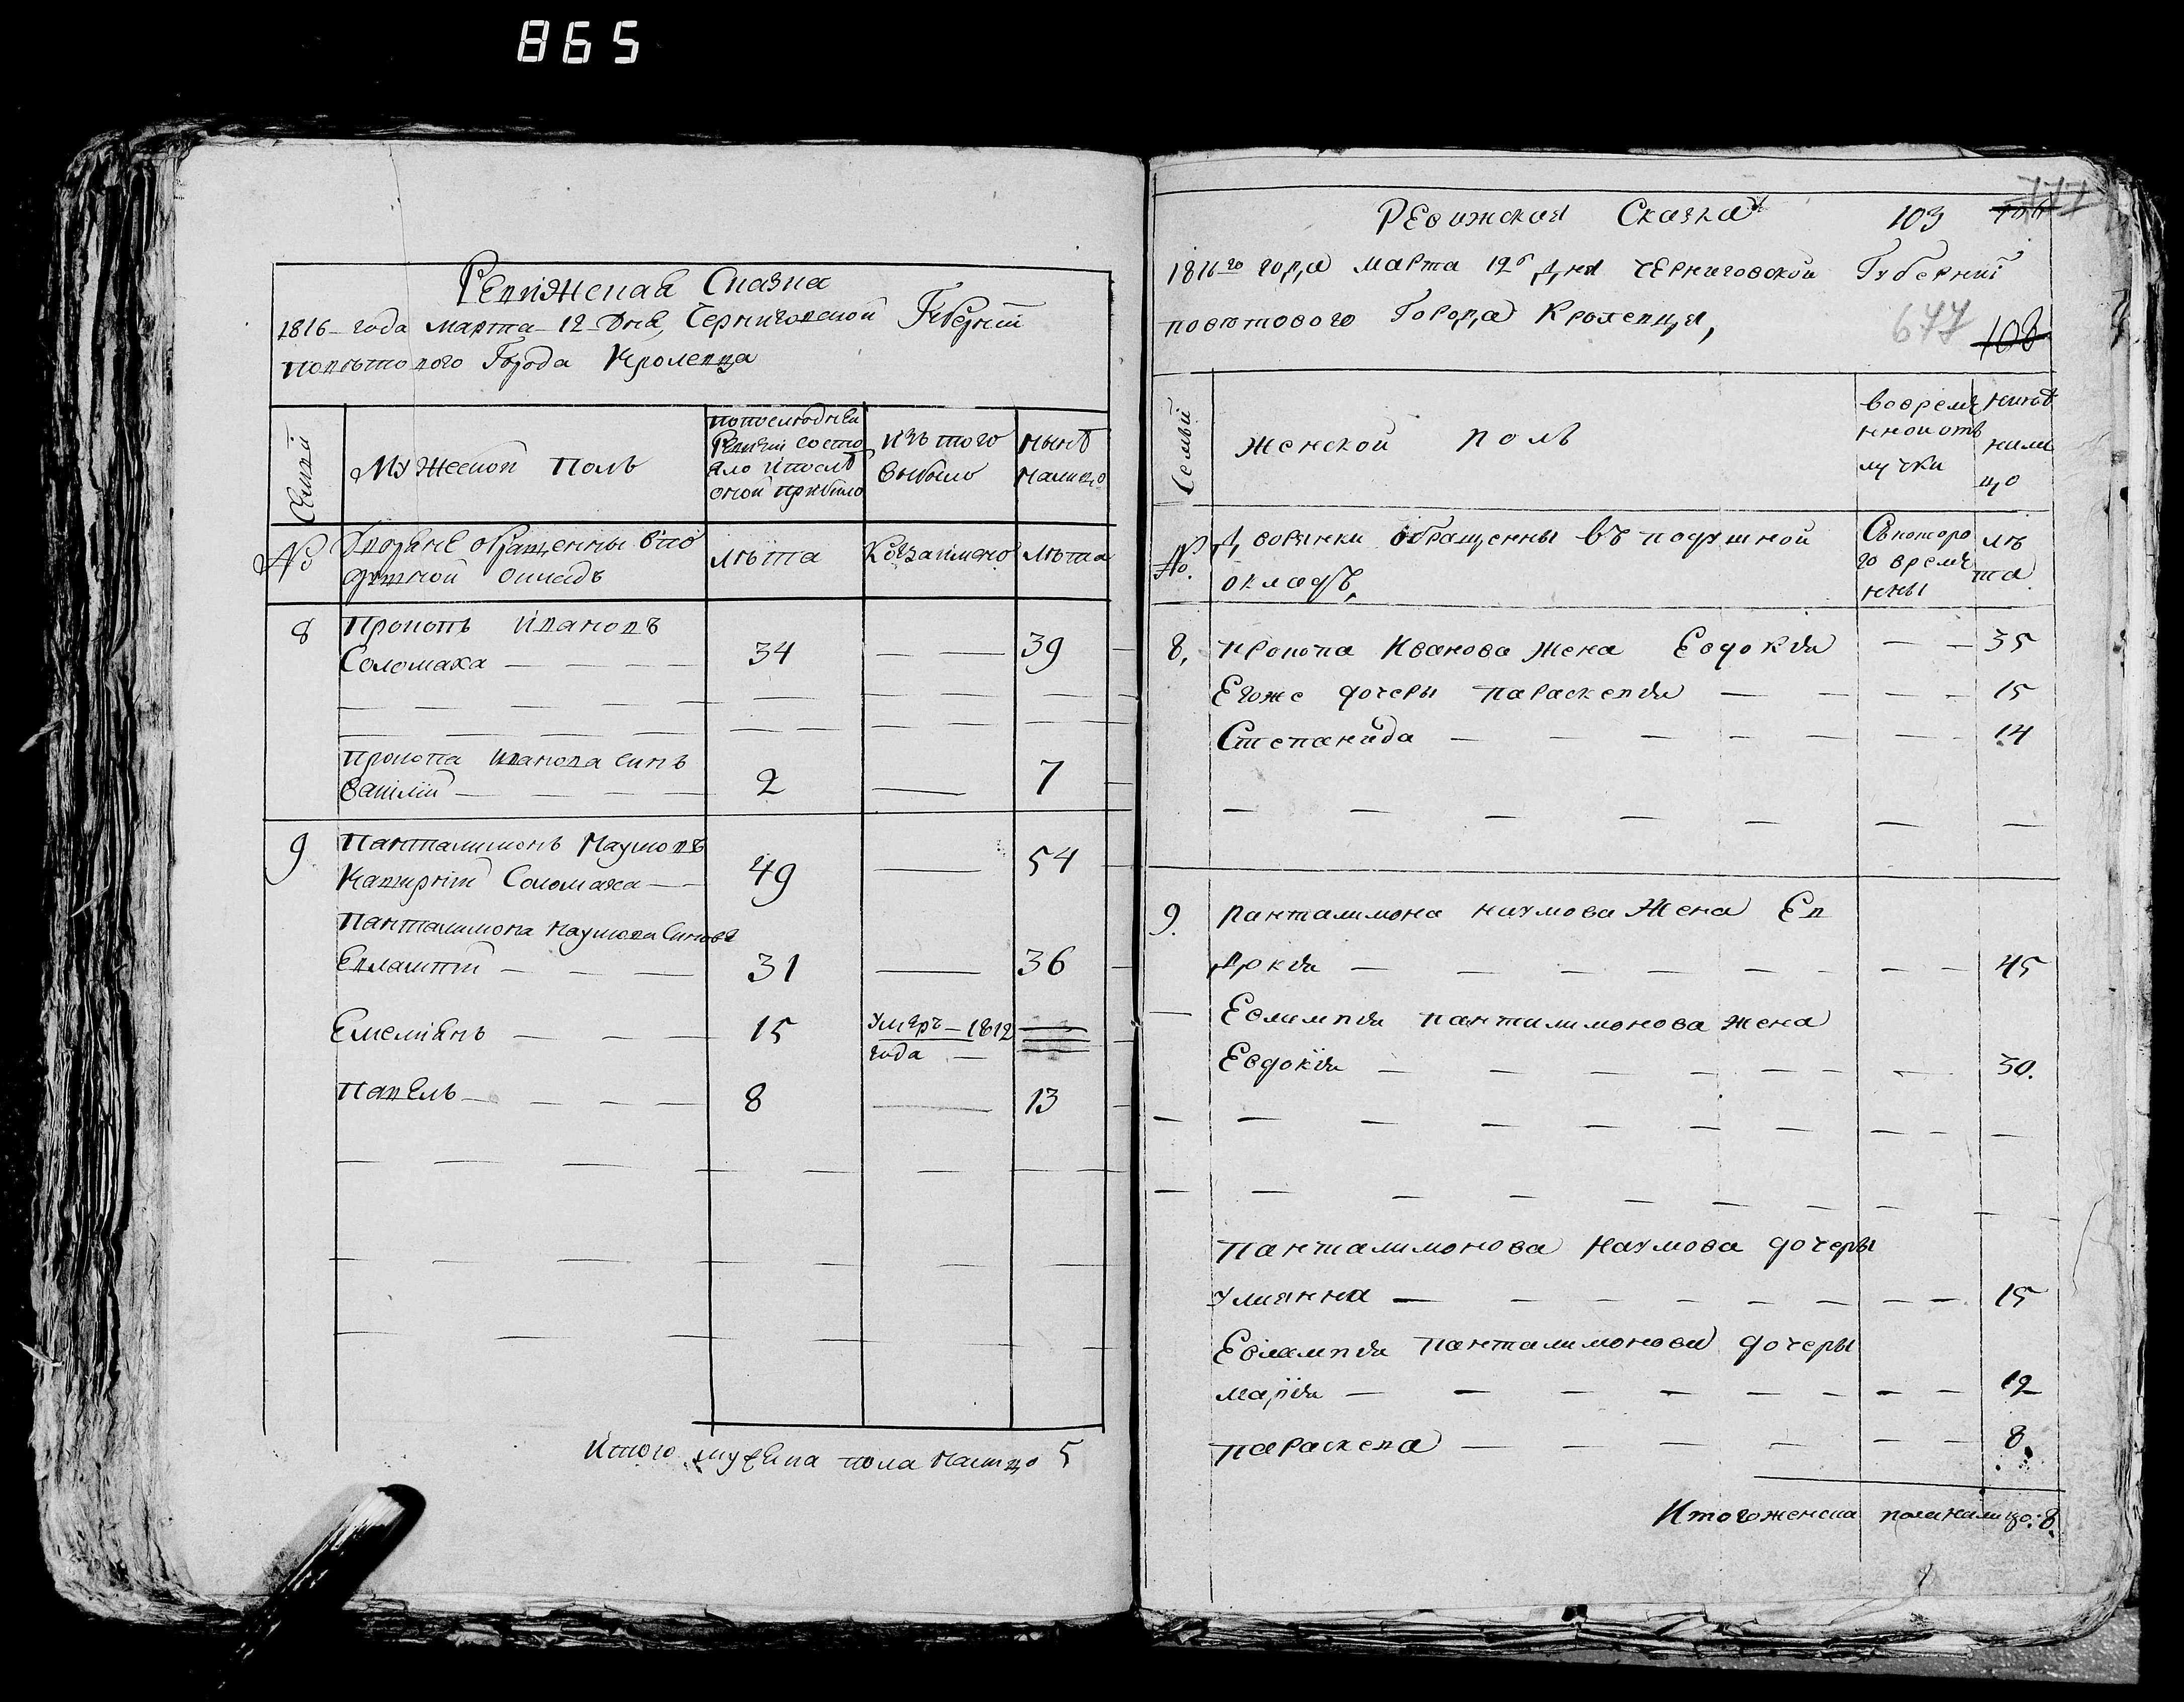 865
Ревижская Сказка
1816 года марта 12 Дня, Черниговской Губерніи
поветового Города Кролевца
Семьи
Мужеской полъ
попоследней
Ревизіи состо
яло ипослѣ
оной прибыло
изъ того
выбыло
нынѣ
налицо
№
Дворяне обращенны впо
душной окладъ
лѣта
Когдаимено
лѣта
8
Прокопъ Ивановъ
Соломаха
34
39
Прокопа Иванова синъ
Василій
2
7
9
Панталимонъ Наумовъ
Соломаха
49
54
Панталимона Наумова Синовя
Евлампій
31
36
Емеліянъ
15
Умеръ 1812
года
Павелъ
8
13
Итого мужеска пола налицо 5
777
Ревижская Сказка
103
1816го года марта 12го дня Черниговской Губерніи
поветового Города Кролевця,
677
108
Семьи
Женской полъ
вовремя
нноиотъ
лучки
нинѣ
нали
цо
№.
Дворянки обращенны въ подушной
окладъ,
Скоторо
го время
нны
лѣ
та
8,
прокопа Иванова жена Евдокія
35
Егоже дочеры параскевія
15
Степанида
14
9.
панталимона наумова Жена Ев
докія
45
Евлампія панталимонова жена
Евдокія
30.
панталимонова Наумова дочеры
улиянна
15
Евлампія панталимонова дочеры
марія
12
параскева
8.
Итогоженска поланалицо: 8.